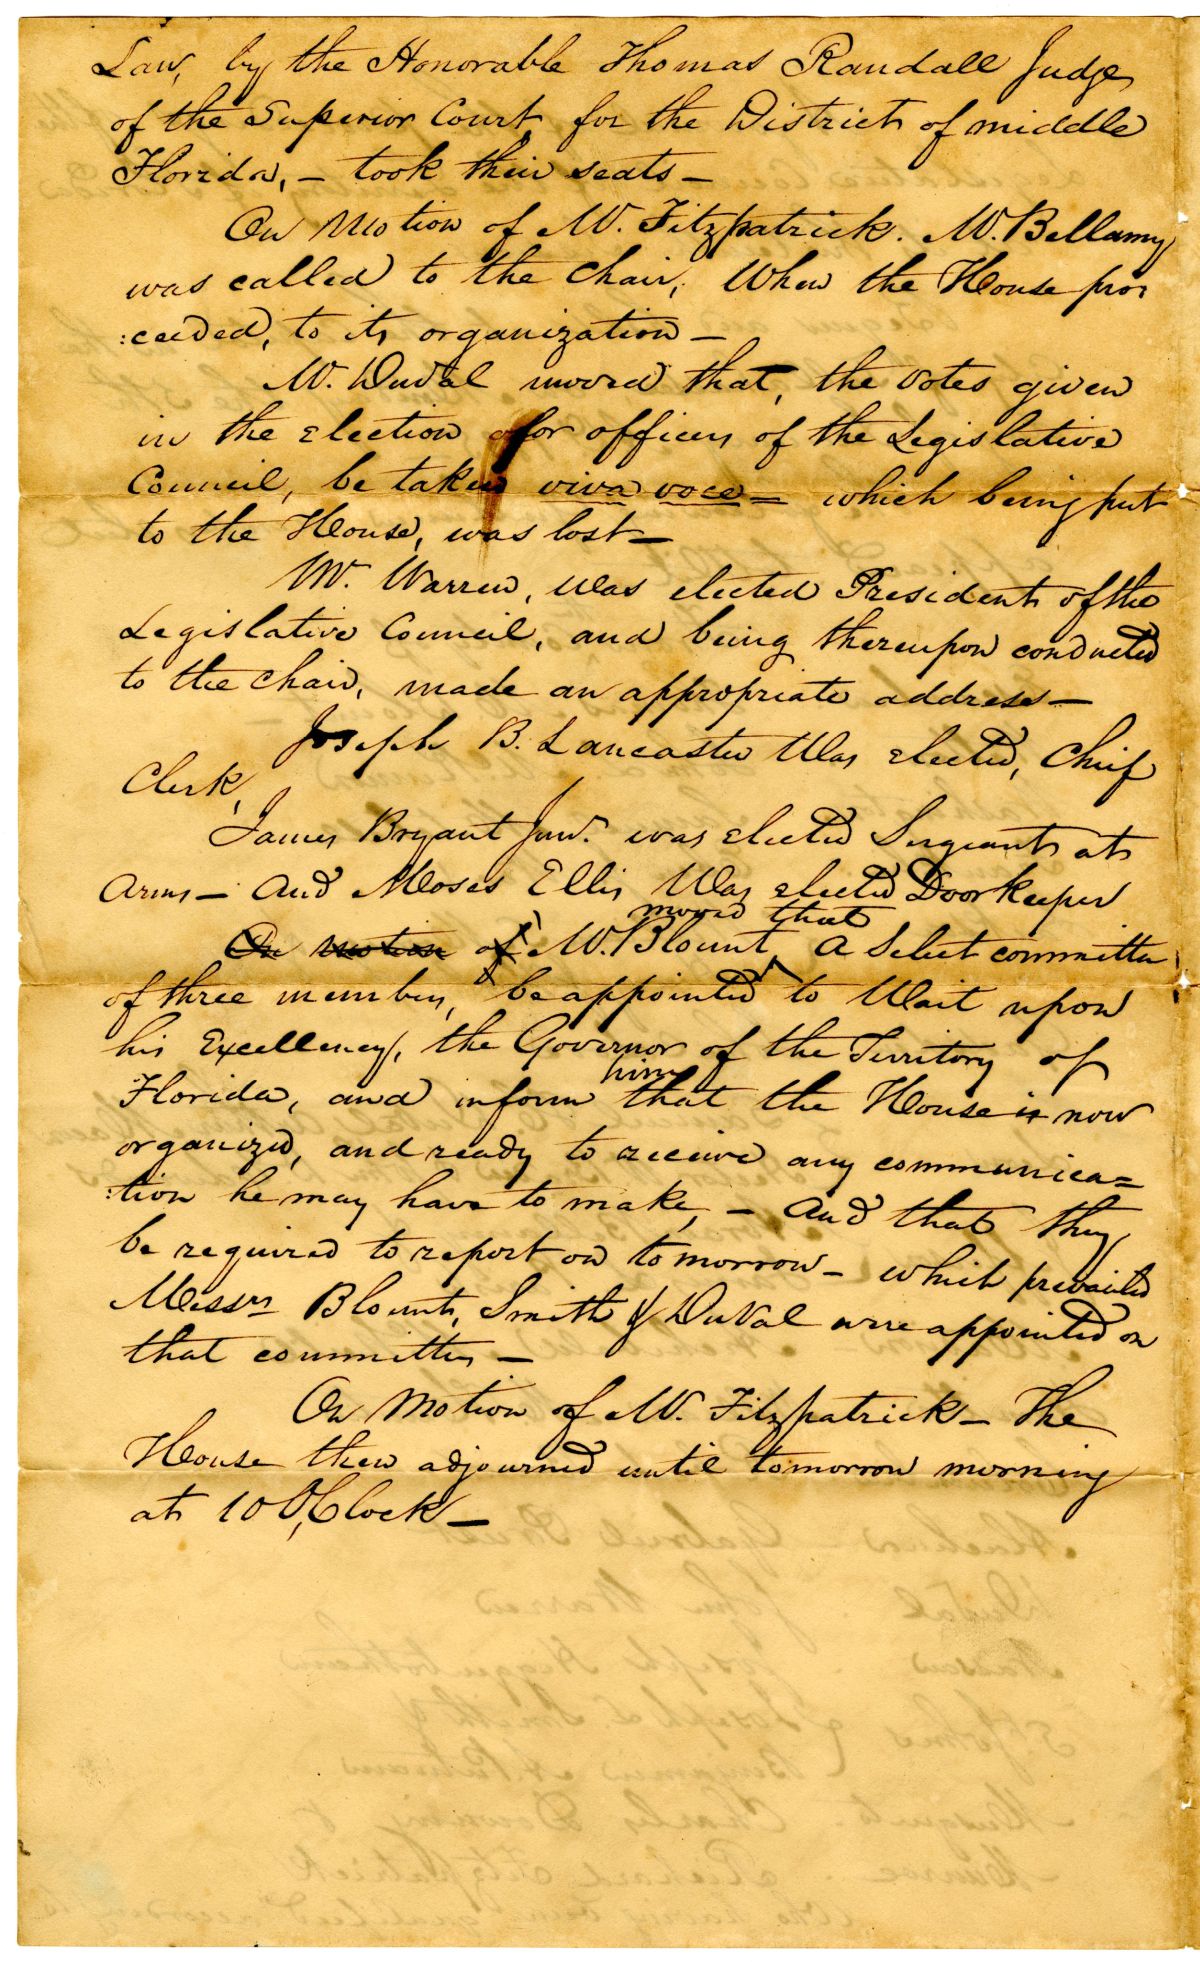 Law, by the Honorable Thomas Randall Judge
of the Superior Court, for the District of middle
Florida, – took their seats –
On Motion of Mr. Fitzpatrick. Mr. Bellamy
was called to the Chair, When the House pro
:ceeded, to its organization –
Mr. Duval moved that, the votes given
in the election for officers of the Legislative
Council, be taken viva voce – which being put
to the House, was lost –
Mr. Warren, was elected President of the
Legislative Council, and being thereupon conducted
to the Chair, made an appropriate address –
Joseph B. Lancaster Was elected, Chief
Clerk,
James Bryant Junr. was elected Sergeant at
Arms – and Moses Ellis Was elected Doorkeeper
moved that
On motion of Mr. Blount, A Select committee
of three members, be appointed to Wait upon
his Excellency, the Governor of the Territory of
him
Florida, and inform that the House is now
organized, and ready to receive any communica=
:tion he may have to make, – and that they
be required to report on tomorrow – which prevailed
Messrs Blount, Smith & DuVal were appointed on
that committee –
On Motion of Mr. Fitzpatrick – The
House then adjourned until tomorrow morning
at 10 O,Clock –